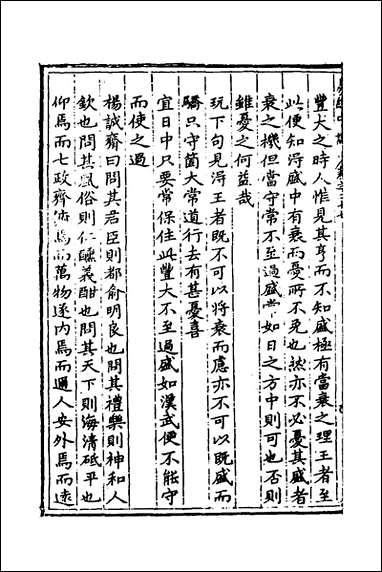 豐大之時人惟見其亨而不知盛極有當衰之理王者至
此便知得盛中有衰而憂所不免也然亦不必憂其盛者
衰之機但當守常不至過盛常如日之方中則可也否則
雖憂之何益哉
玩下句見得王者既不可以將衰而慮亦不可以既盛而
驕只守箇大常道行去有甚憂喜
宜日中只要常保住此豐大不至過盛如漢武便不能守
而使之過
楊誠齋曰問其君臣則都俞明良也問其禮樂則神和人
欽也問其風俗則仁醺義酣也問其天下則海清砥平也
仰焉而七政齊俯焉而萬物遂内焉而邇人安外焉而逺